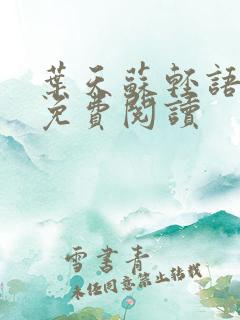 葉天蘇輕語
免費閱讀
雪書青
未經同意禁止轉載